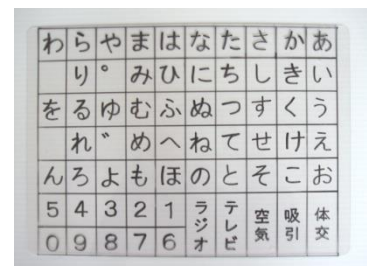 わ ら や ま は な た さ か あ
り ゜ み ひ に ち し き い
を る ゆ む ふ ぬ つ す く う
れ ゛ め へ ね て せ け え
ん ろ よ も ほ の と そ こ お
5 4 3 2 1 ラジオ テレビ 空気 吸引 体交
0 9 8 7 6